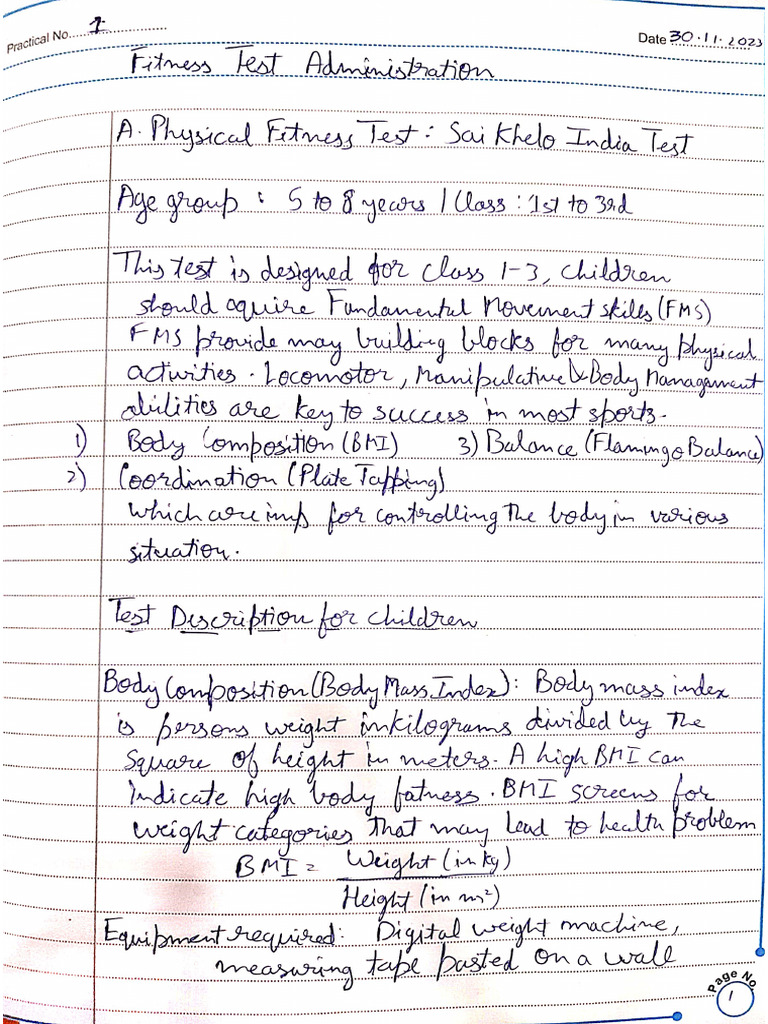 Practical No. 1
Date 30.11.2023
Fitness Test Administration
A. Physical Fitness Test : Sai Khelo India Test
Age group : 5 to 8 years / Class : 1st to 3rd
This test is designed for class 1-3, children
should aquire Fundamental Movement skills (FMS)
FMS provide may building blocks for many physical
activities. Locomotor, Manipulative & Body Management
abilities are key to success in most sports.
1) Body Composition (BMI) 3) Balance (Flamingo Balance)
2) Coordination (Plate Tapping)
which are imp for controlling the body in various
situation.
Test Description for children
Body Composition (Body Mass Index) : Body mass index
is persons weight in kilograms divided by the
square of height in meters. A high BMI can
indicate high body fatness. BMI screens for
weight categories that may lead to health problem
BMI = Weight (in kg)
Height (in m²)
Equipment required: Digital weight machine,
measuring tape pasted on a wall
Page No. 1